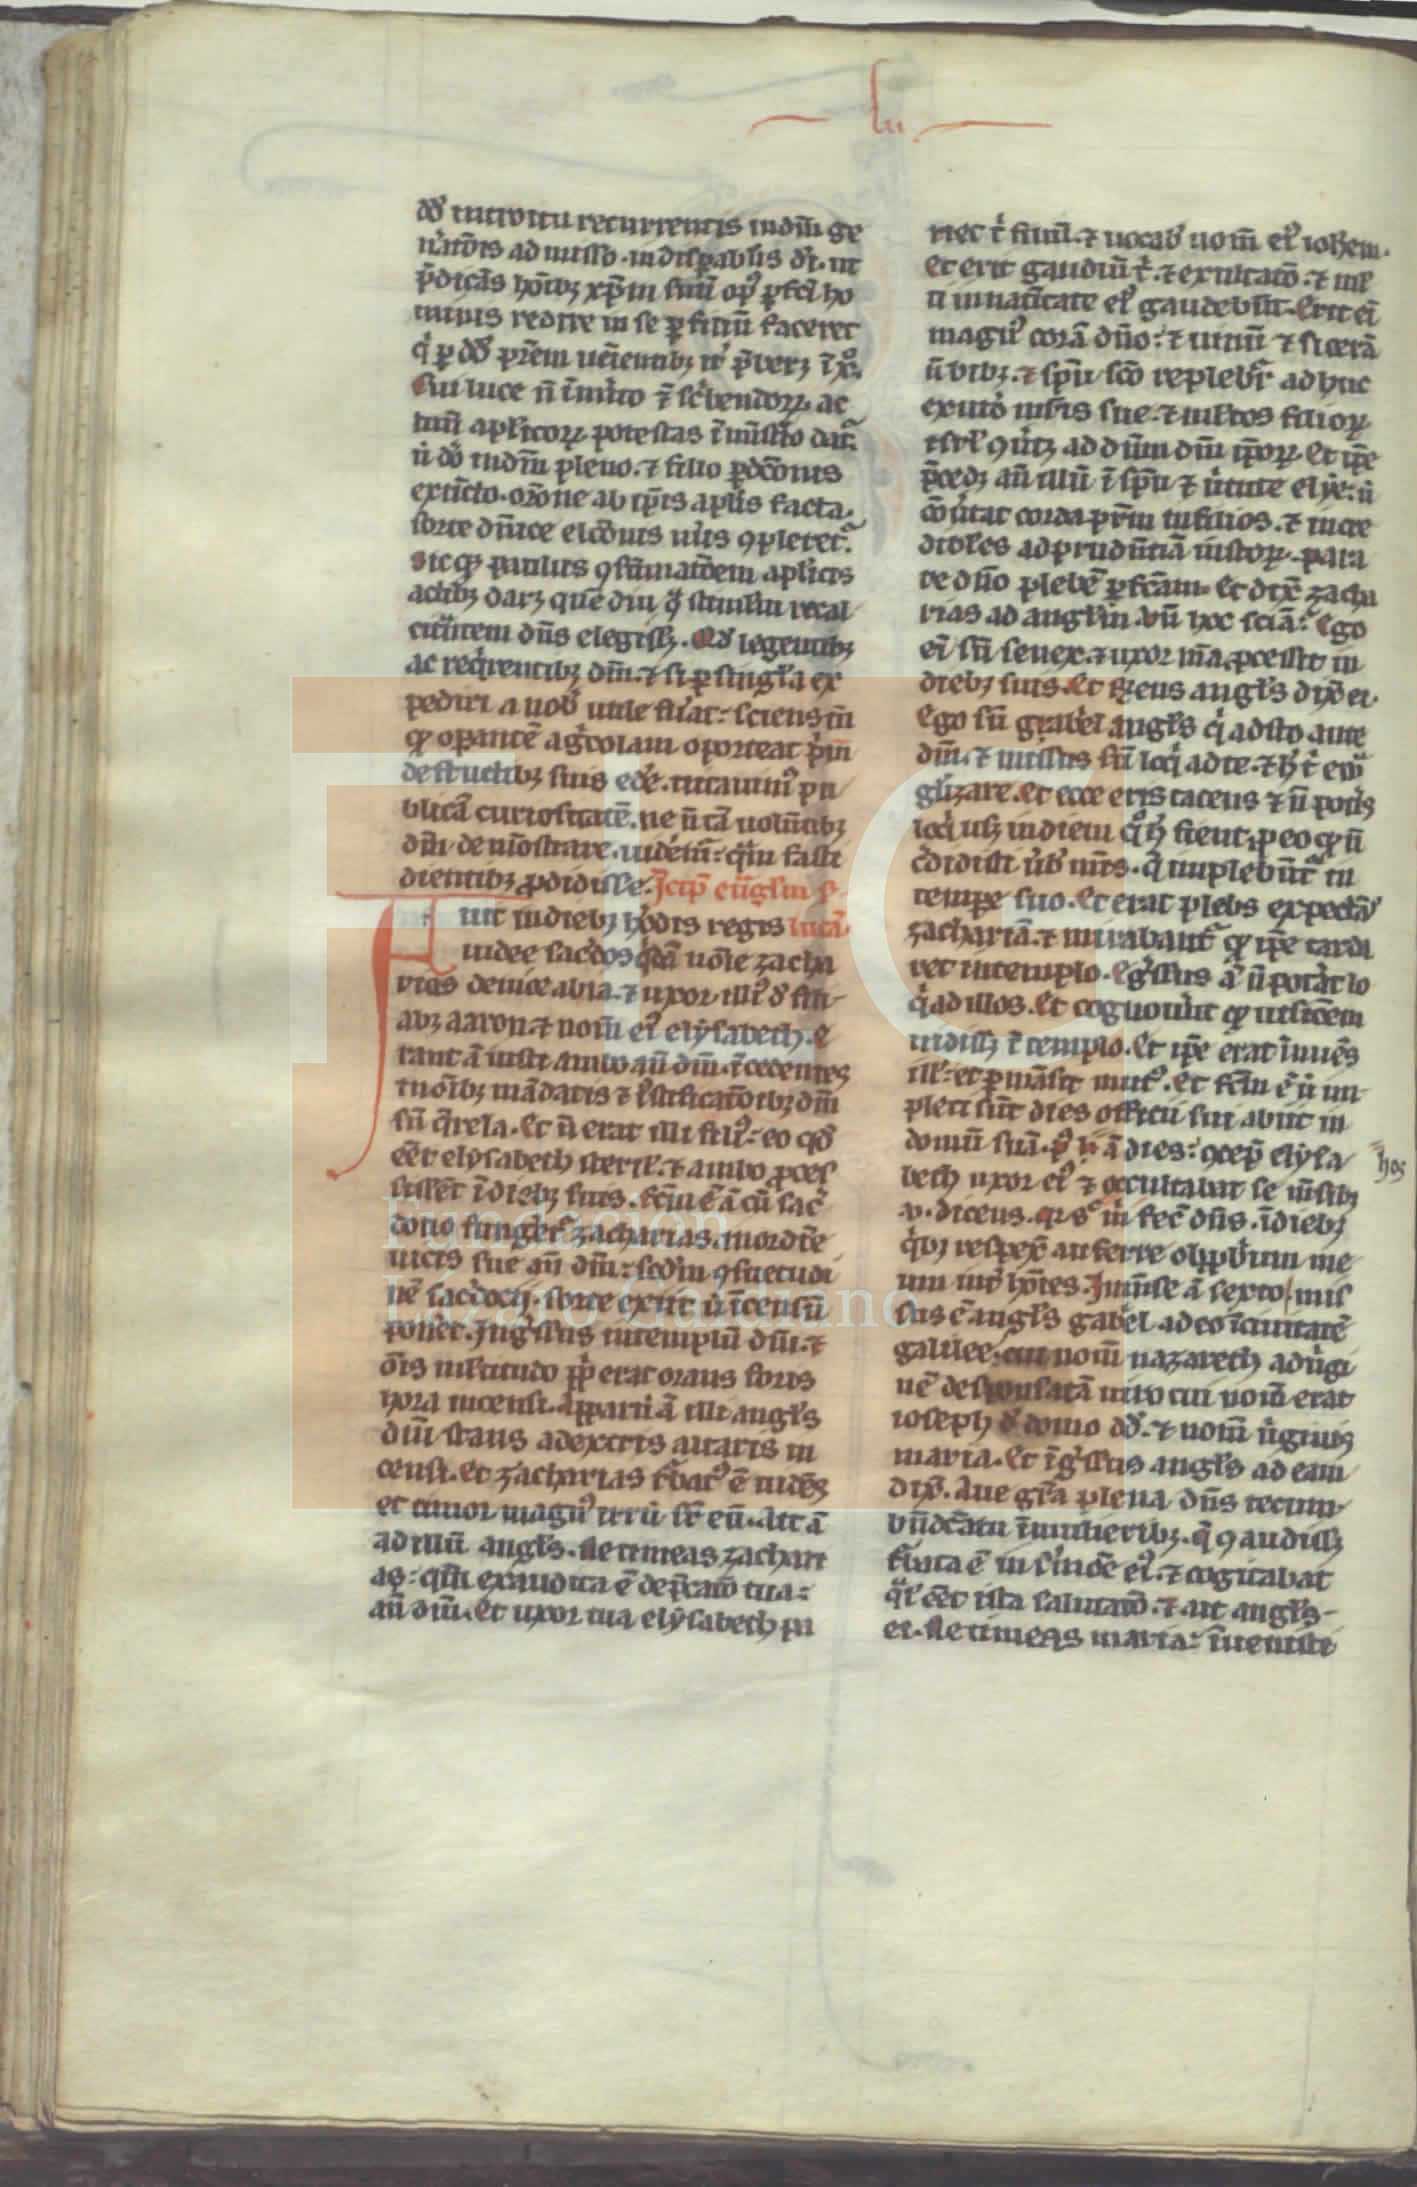 lu
dđ introitu recurrentis in dm̄ ge
n̄atōis admisso. indispabilis dī. ut
p̄dicās hōībꝫ xp̄m suū opꝰ pfc̄i ho
minis redire in se p filiū faceret
q̇ p dđ prēm uēientibꝫ it̄ p̄bebꝫ ī xº.
Cui luce n̄ īmito ꝫ sc̄bendoꝝ ac
tuū aplicoꝝ potestas ī mīstio dat̄
ut dō in dm̄ pleno. ⁊ filio pdc̄onis
extīcto. orōne ab ip̄is aplīs facta.
sorte dn̄ice elcōnis nūs ꝯpleret̄.
Sic qꝫ paulus ꝯsūmatōem aplicis
actibꝫ darꝫ quē diu ꝯ̄ stimulū recal
citūntem dn̄s elegissꝫ. Qđ legentibꝫ
ac req̇rentibꝫ dm̄. ⁊ si p singl̄a ex
pediri a nob̄ utile fūat: sciens tn̄
qꝫ opantē agͥcolam oporteat dͤ suis
de fructibꝫ suis edē. uitauimꝰ pu
blicā curiositatē. ne n̄ tā uoln̄tibꝫ
dm̄ demōstrare. uidēm̄: qͣm fasti
dientibꝫ pdidisse. Īcip̄ eūgl̄m ẜ.
Fuit in diebꝫ hōdis regis lucā.
iudee sac̄dos q̇dā nōie zacha
rias de uice abia. ⁊ uxor illiꝰ đ fili
abꝫ aaron. ⁊ nom̄ eiꝰ elẏsabeth. e
rant ā iusti ambo an̄ dm̄. īcedentes
in oībꝫ mādatis ⁊ iustificatōibꝫ dm̄
sn̄ q̄rela. Et n̄ erat illi filiꝰ: eo qđ
eēt elẏsabeth steril̄. ⁊ ambo pces
sissēt ī diebꝫ suis. fc̄m ē ā cū sac̄
dotio fungēt̄ zacharias. in ordīe
uicis sue an̄ dm̄: sc̄dm ꝯsuetudi
nē sac̄docij. sorte exiit ut īcensū
ponēt. Ingͥssus in templū dm̄. ⁊
ōis mltitudo ppͥ erat orans foris
hora incensi. Apparuit ā illi angl̄s
dm̄ stans a dextris altaris in
censi. et zacharias t̄batꝰ ē uidēs
et timor magnꝰ irruit sr̄ eū. Ait ā
ad illū angl̄s. Ne timeas zachari
as: qm̄ exaudita ē dep̄catō tua:
an̄ dm̄. Et uxor tua elẏsabeth pa
riet t̄ filiū. ⁊ uocab̄ nom̄ eiꝰ iohēm.
Et erit gaudiū t̄. ⁊ exultatō. ⁊ ml̄
ti in natītate eiꝰ gaudebūt. Erit eī
magnꝰ corā dn̄o: ⁊ uinū ⁊ sicerā
n̄ bibꝫ. ⁊ sp̄u sc̄o replebit̄ adhuc
ex utō mr̄is sue. ⁊ mltos filioꝝ
isrl̄ ꝯūtꝫ ad dn̄m dm̄ ip̄oꝝ. Et ip̄e
p̄cedꝫ an̄ illū ī sp̄u ⁊ ūtute elẏe: ut
cōūtat corda prm̄ in filios. ⁊ incre
dibles ad prudn̄tiā iustoꝝ. para
re dn̄o plebē pfc̄am. Et dix̄ zacha
rias ad angl̄m. Vn̄ hoc sciā? Ego
eī sū senex. ⁊ uxor m̄a pcessit in
diebꝫ suis. Et r̄ns angl̄s dix̄ ei.
Ego sū gabͥel angl̄s q̇ adsto ante
dm̄. ⁊ missus sū loq̇ ad te. ⁊ h̄ t̄ euā
gl̄izare. et ecce eris tacens ⁊ n̄ pot̄is
loq̇ usqꝫ in diem qͦ h̄ fient. p eo qꝫ n̄
c̄didisti ūb̄ mīs. q̄ implebūt̄ in
tempe suo. Et erat plebs expectās
zachariā. ⁊ mirabant̄ qꝫ ip̄e tarda
ret in templo. Egͥssus ā n̄ potāt lo
q̇ ad illos. Et cognouūt qꝫ uisiōem
uidissꝫ ī templo. Et ip̄e erat īnuēs
ill̄: et pmāsit mutꝰ. et fc̄m ē ut im
pleti sūt dies officii sui abiit in
domū suā. pꝰ h̄ ā dies: ꝯcep̄ elẏsa hos
beth uxor eiꝰ ⁊ occultabat se mēsibꝫ
.v. dicens. qꝛ sͥc m̄ fec̄ dn̄s. ī diebꝫ
q̇bꝫ respex̄ auferre opp̄bium me
um int̄ hōīes. In mēse ā sexto mis
sus ē angl̄s gabͥel a deo ī ciuitatē
galilee. cui nom̄ nazareth ad ūgi
nē desponsatā uiro cui nom̄ erat
ioseph đ domo dđ. ⁊ nom̄ ūginis
maria. Et īgͥssus angl̄s ad eam
dix̄. Aue gr̄a plena dn̄s tecum
bn̄dc̄a tu ī mulieribꝫ. q̄ ꝯ audissꝫ
t̄bata ē in s̄mōe eiꝰ. ⁊ cogitabat
q̄lis eēt ista salutatō. ⁊ ait angl̄s
ei. Ne timeas maria: īuenisti
FLG
Fundación
Lázaro Galdiano